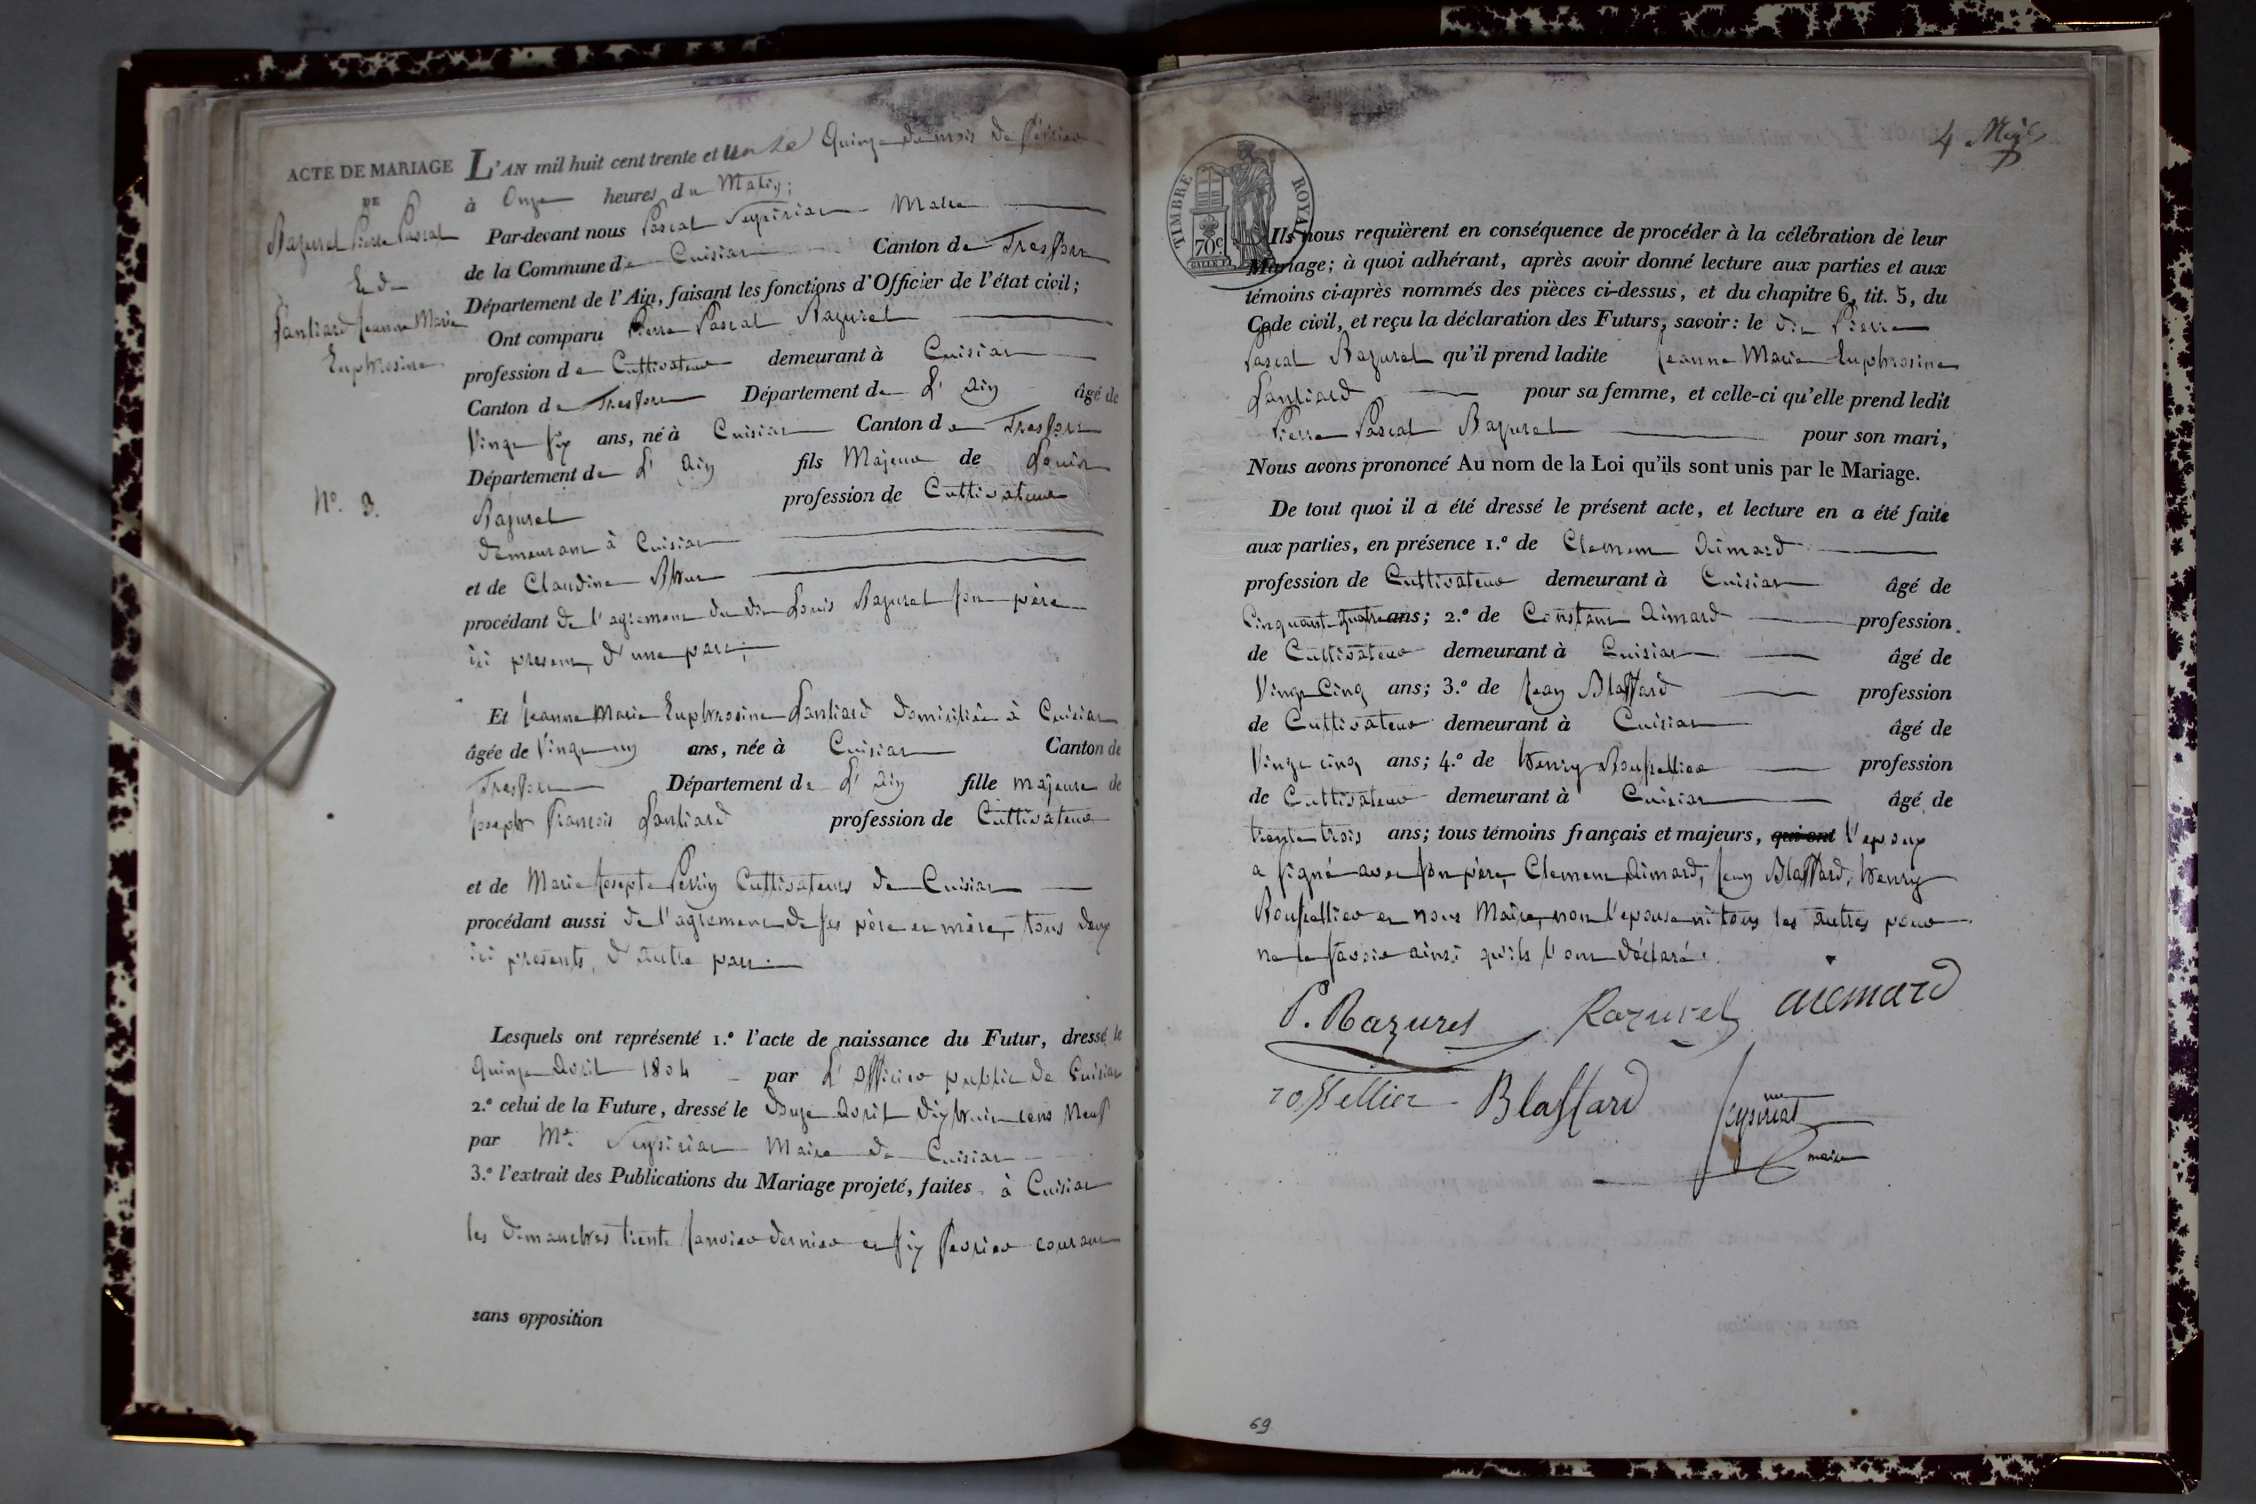 ACTE DE MARIAGE
DE
Razurel Pierre Pascal
Et de
Lantiard Jeanne Marie
Euphrosine
N.º 3.
L'AN mil huit cent trente et un le Quinze du mois de février
à Onze heures du Matin;
Par-devant nous Pascal Seysiriat Maire
de la Commune de Cuisiat Canton de Treffort
Département de l'Ain, faisant les fonctions d'Officier de l'état civil;
Ont comparu Pierre Pascal Razurel
profession de Cultivateur demeurant à Cuisiat
Canton de Treffort Département de L'Ain âgé de
Vingt six ans, né à Cuisiat Canton de Treffort
Département de L'Ain fils Majeur de Louis
Razurel profession de Cultivateur
demeurant à Cuisiat
et de Claudine
procédant de l'agrement du dit Louis Razurel son père
ici present, d'une part;
Et Jeanne Marie Euphrosine Lantiard domiciliée à Cuisiat
âgée de Vingt un ans, née à Cuisiat Canton de
Treffort Département de L'Ain fille majeure de
Joseph François Lantiard profession de Cultivateur
et de Marie Josepte Perrin Cultivateurs de Cuisiat
procédant aussi de l'agrement de ses père et mère, tous deux
ici présents, d'autre part.
Lesquels ont représenté 1.º l'acte de naissance du Futur, dressé le
Quinze Avril 1804 par L'officier public de Cuisiat
2.º celui de la Future, dressé le douze Avril dix huit cent neuf
par Mr. Seysiriat Maire de Cuisiat
3.º l'extrait des Publications du Mariage projeté, faites à Cuisiat
les dimanches trente Janvier dernier et six fevrier courant
sans opposition
4
TIMBRE ROYAL
70c
Ils nous requièrent en conséquence de procéder à la célébration de leur
Mariage; à quoi adhérant, après avoir donné lecture aux parties et aux
témoins ci-après nommés des pièces ci-dessus, et du chapitre 6, tit. 5, du
Code civil, et reçu la déclaration des Futurs, savoir: le dit Pierre
Pascal Razurel qu'il prend ladite Jeanne Marie Euphrosine
Lantiard pour sa femme, et celle-ci qu'elle prend ledit
Pierre Pascal Razurel pour son mari,
Nous avons prononcé Au nom de la Loi qu'ils sont unis par le Mariage.
De tout quoi il a été dressé le présent acte, et lecture en a été faite
aux parties, en présence 1.º de Clement Aimard
profession de Cultivateur demeurant à Cuisiat âgé de
Cinquante quatre ans; 2.º de Constant Aimard profession
de Cultivateur demeurant à Cuisiat âgé de
Vingt Cinq ans; 3.º de Jean Blaffard profession
de Cultivateur demeurant à Cuisiat âgé de
Vingt cinq ans; 4.º de Henry Roussellier profession
de Cultivateur demeurant à Cuisiat âgé de
trente trois ans; tous témoins français et majeurs, qui ont l'epoux
a signé avec son père, Clement Aimard, Jean Blaffard, Henry
Roussellier et nous Maire, non l'epouse ni tous les autres pour
ne le savoir ainsi qu'ils l'ont déclaré.
P. Razurel Razurel aiemard
rossellier Blaffard Seysiriat
maire
69